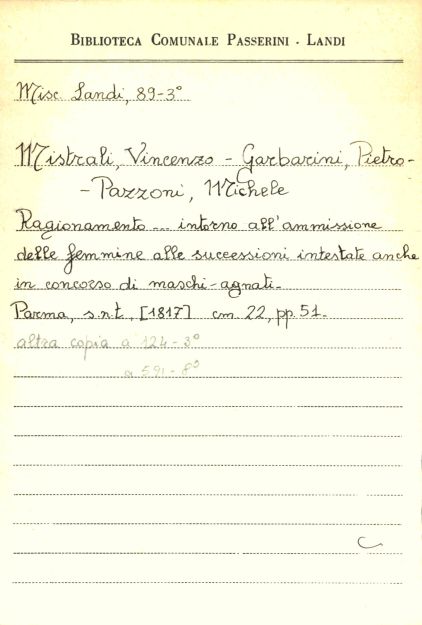 BIBLIOTECA COMUNALE PASSERINI - LANDI
Misc. Landi, 89-3°
Mistrali, Vincenzo - Garbarini, Pietro-
- Pazzoni, Michele
Ragionamento ... intorno all'ammissione
delle femmine alle successioni intestate anche
in concorso di maschi-agnati-
Parma, s.n.t, [1817] cm. 22, pp. 51-
altra copia a 124-3°
a 591-8°
C